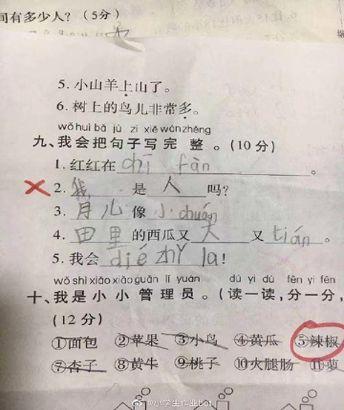 间有多少人？（5分）
5. 小山羊上山了。
6. 树上的鸟儿非常多。
wǒ huì bǎ jù zi xiě wánzhěng
九、我会把句子写完整。（10分）
1. 红红在 chī fàn 。
2. 我 是 人 吗？
3. 月儿 像 小chuán
4. 田里 的西瓜又 大 又 tián 。
5. 我会 dié zhǐ la！
wǒ shì xiǎo xiǎo guǎn lǐ yuán dú yi dú fēn yi fēn
十、我是小小管理员。（读一读，分一分，
（12分）
①面包 ②苹果 ③小鸟 ④黄瓜 ⑤辣椒
⑦杏子 ⑧黄牛 ⑨桃子 ⑩火腿肠 ⑪萝